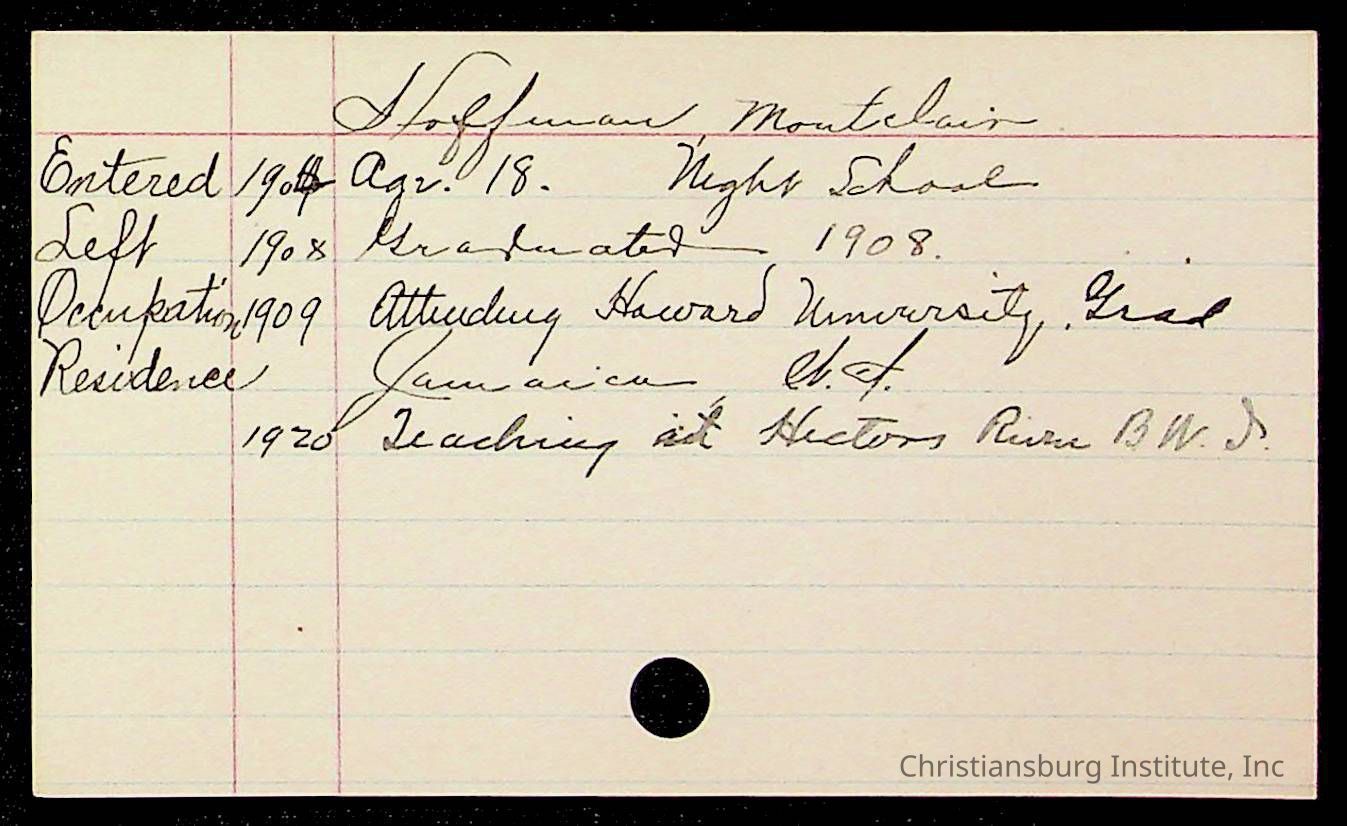 Hoffman, Montclair
Entered 1904 Agr. 18. Night School
Left 1908 Graduated 1908.
Occupation 1909 Attending Howard University, Grad
Residence Jamaica W. I.
1920 Teaching at Hectors River B W. I.
Christiansburg Institute, Inc